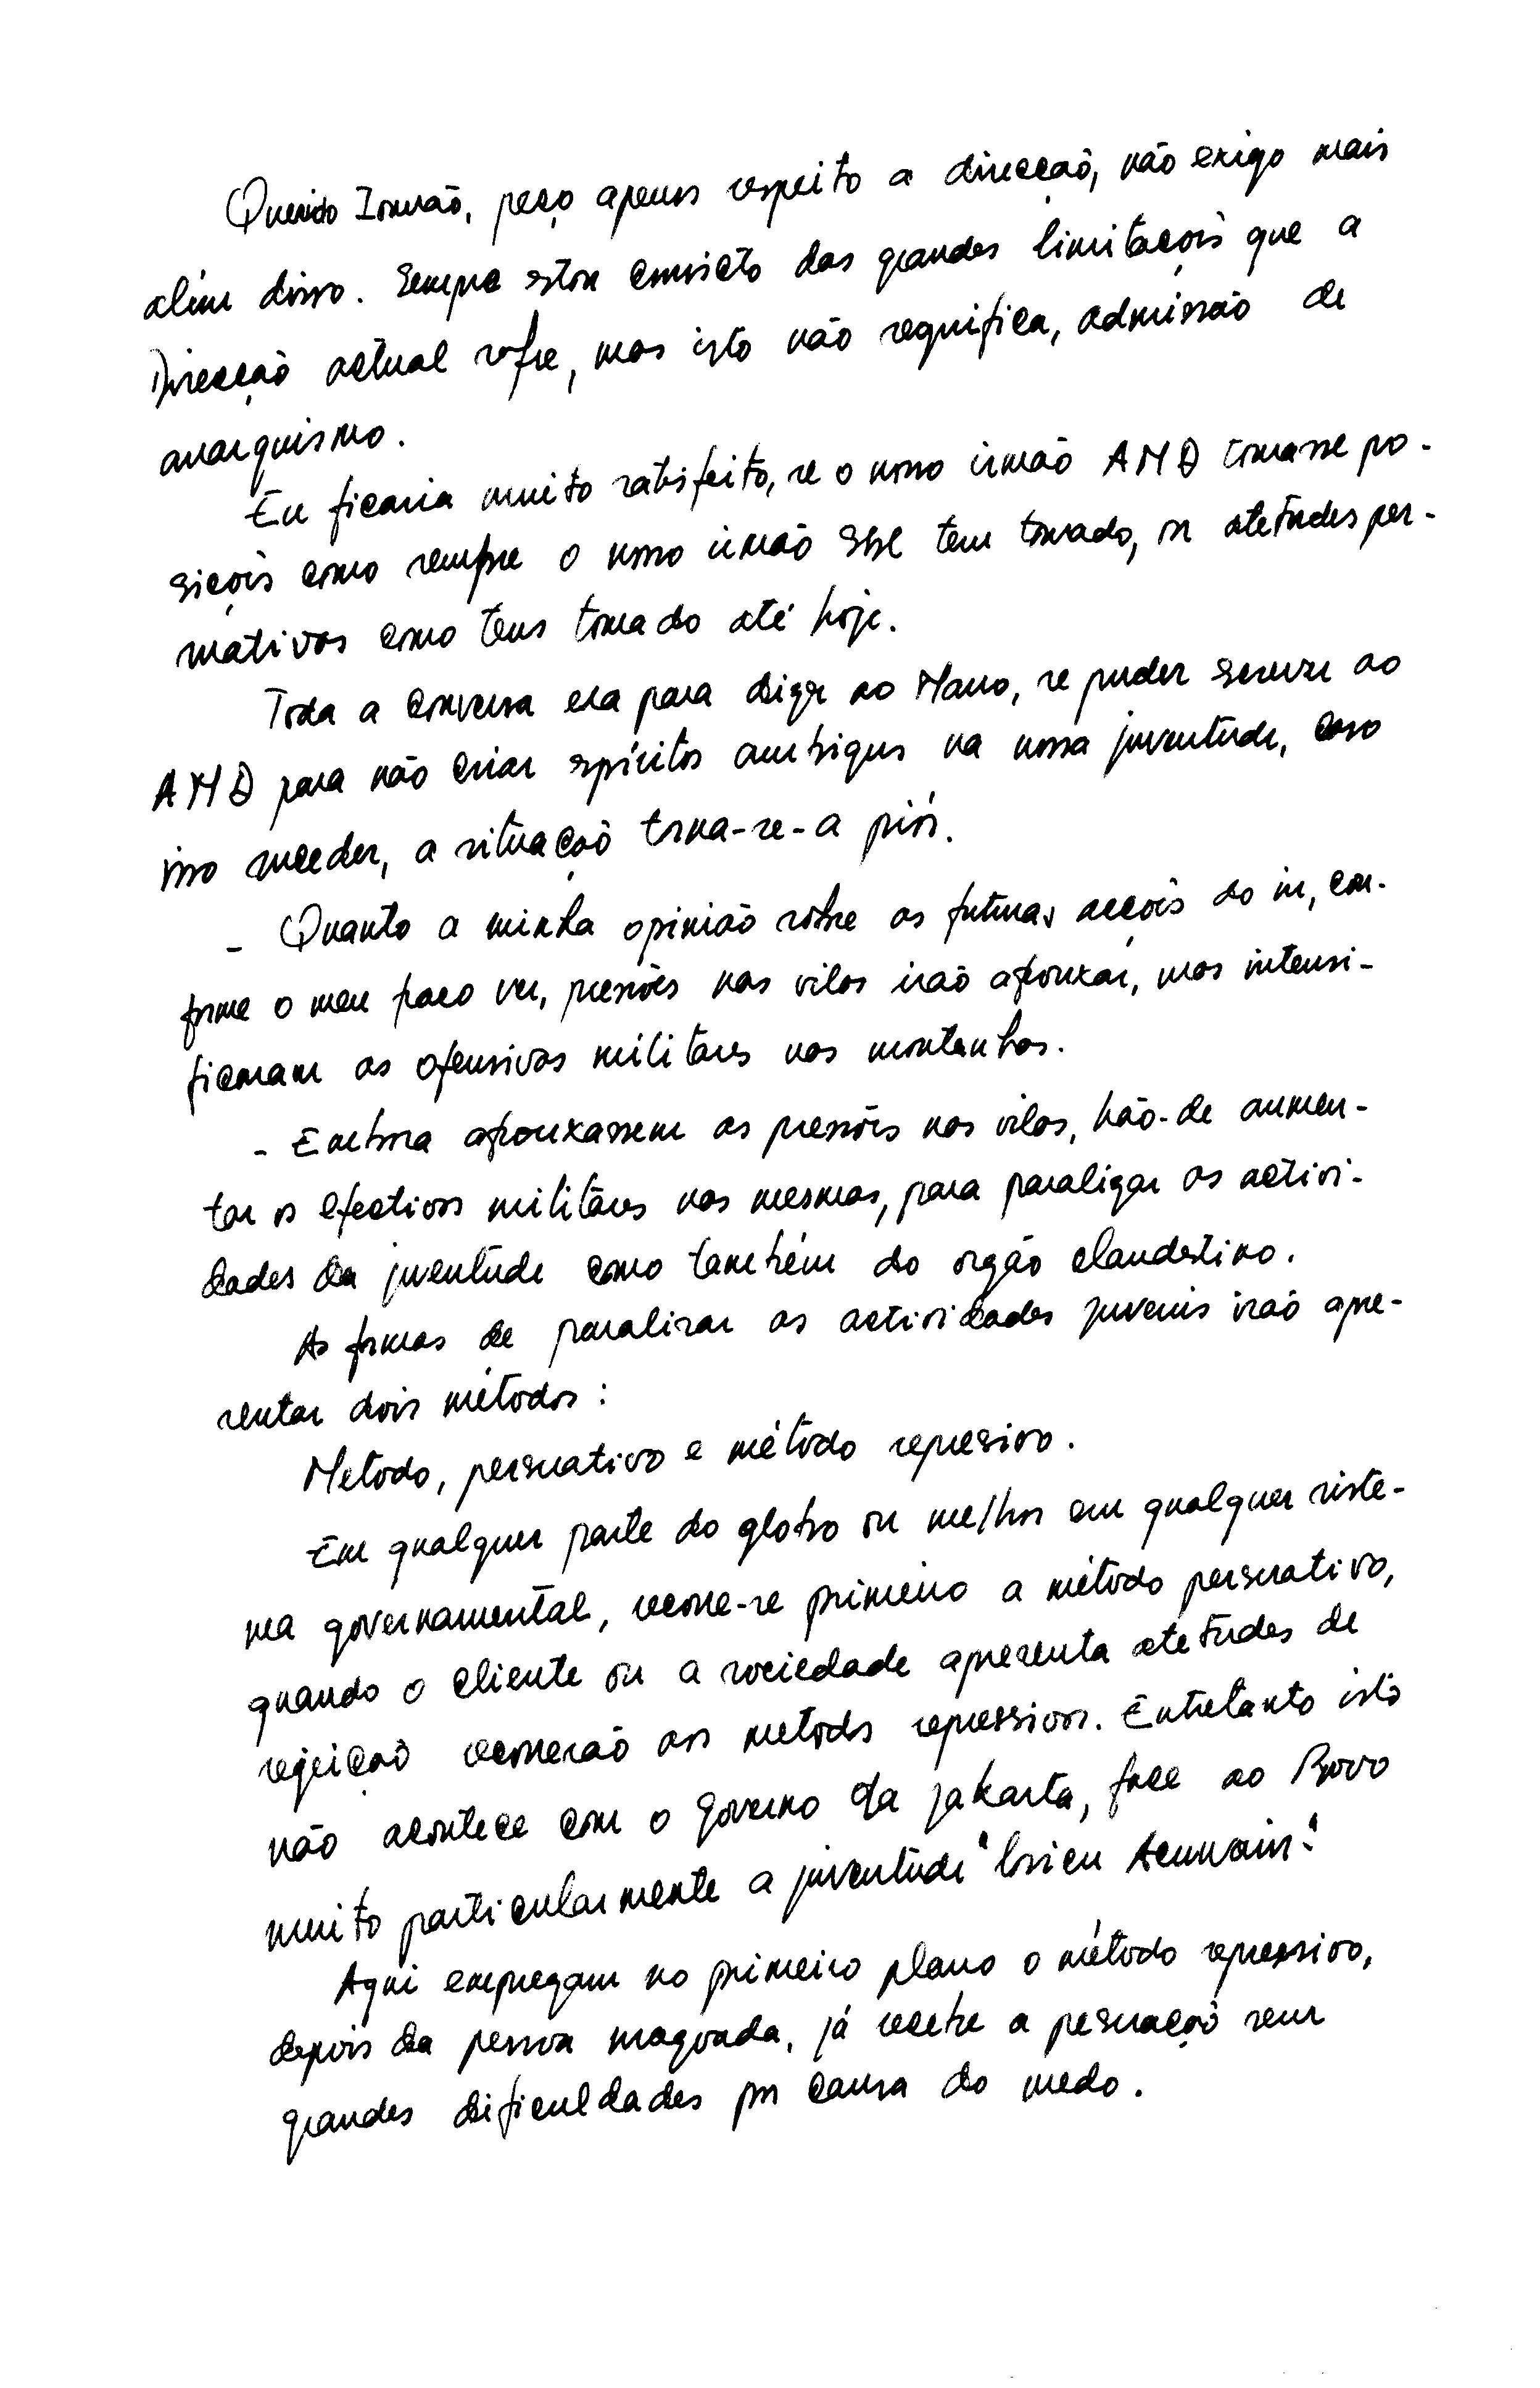 Querido Irmão, peço apenas respeito a direcçaõ, não exigo mais
além disso. Sempre estou convicto das grandes limitaçois que a
Direcçaõ actual sofre, mas isto não segnifica, admissão de
anarquismo.
Eu ficaria muito satisfeito, se o nosso irmão AMD tomasse po-
siçois como sempre o nosso irmão tem tomado, ou atetudes per-
mativas como tens tomado até hoje.
Toda a conversa era para dizer ao Mano, se puder screver ao
AMD para não criar espíritos ambigus na nossa juventude, caso
isso suceder, a situaçaõ torna-se-a piór.
- Quanto a minha opinião sobre as futuras acçois do in, con-
forme o meu faco ver, pressões nas vilas iraõ afrouxar, mas intensi-
ficaram as ofensivas militares nas montanhas.
- Embora afrouxassem as pressões nas vilas, hão-de aumen-
tar os efectivos militáres nas mesmas, para paralizar as activi-
dades da juventude como também do orgão clandestino.
As formas de paralizar as actividades juvenis iraõ apre-
sentar dois métodos :
Metodo, persuativo e método represivo.
Em qualquer parte do globo ou melhor em qualquer siste-
ma governamental, recorre-se primeiro a método persuativo,
quando o cliente ou a sociedade apresenta atetudes de
rejeiçaõ recorrerão aos metodos repressivos. Entretanto isto
não acontece com o Governo da Jakarta, face ao Povo
muito particularmente a juventude "Loricu Aswain".
Aqui empregam no primeiro plano o método repressivo,
depois da pessoa magoada, já recebe a pesuaçaõ sem
grandes dificuldades por causa do medo.